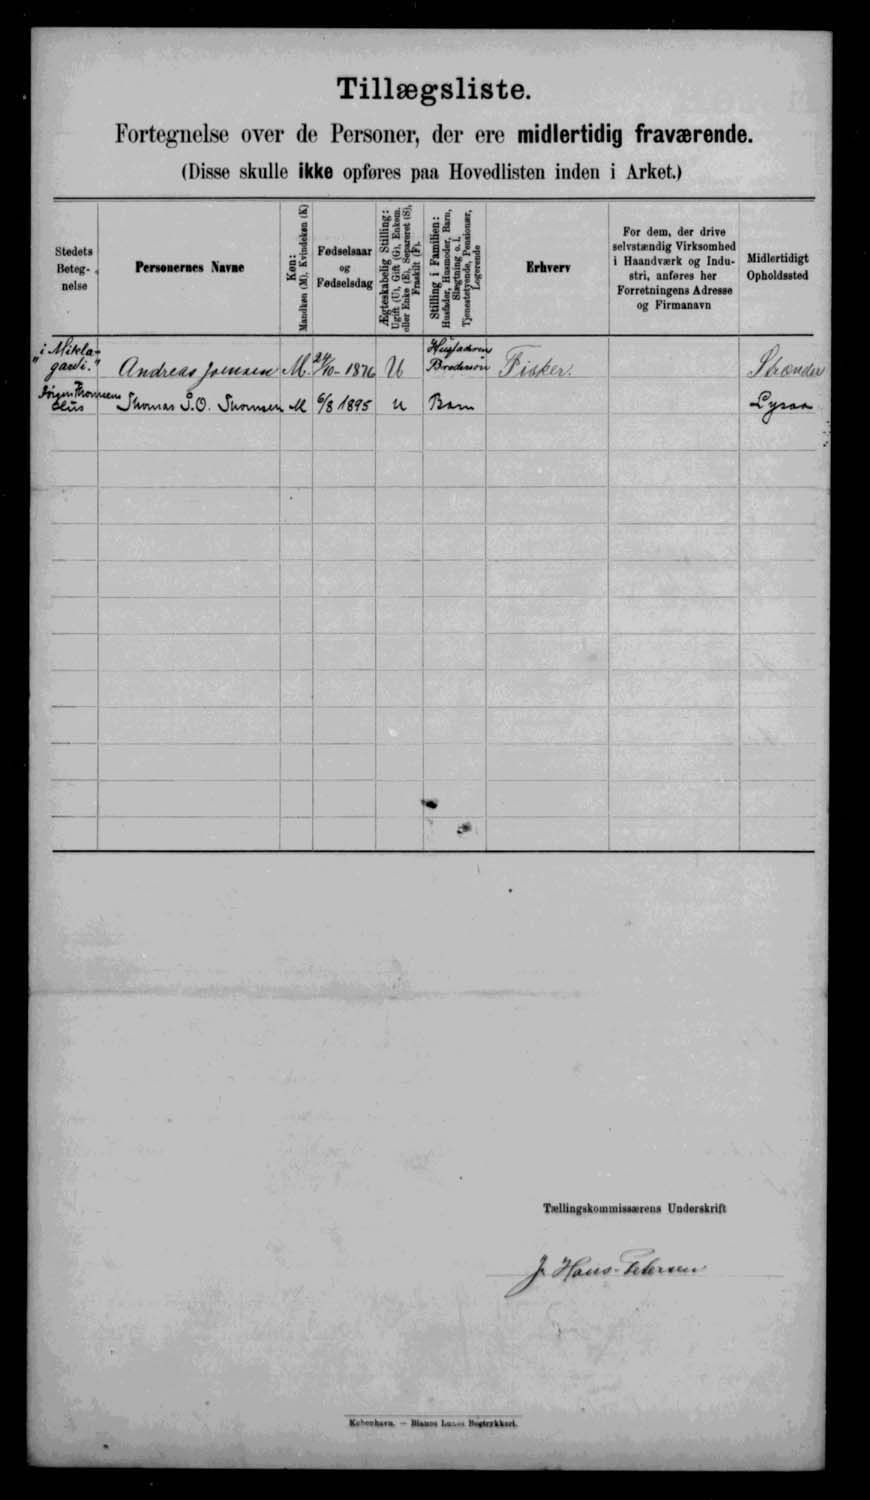 Tillægsliste.
Fortegnelse over de Personer, der ere midlertidig fraværende.
(Disse skulle ikke opføres paa Hovedlisten inden i Arket.)
Stedets Betegnelse
Personernes Navne
Køn: Mandkøn (M), Kvindekøn (K)
Fødselsaar og Fødselsdag
Ægteskabelig Stilling: Ugift (U), Gift (G), Enkem. eller Enke (E), Separeret (S), Fraskilt (F).
Stilling i Familien: Husfader, Husmoder, Barn, Slægtning o. l. Tjenestetyende, Pensionær, Logerende
Erhverv
For dem, der drive selvstændig Virksomhed i Haandværk og Industri, anføres her Forretningens Adresse og Firmanavn
Midlertidigt Opholdssted
"i Miklagardi." Andreas Joensen M. 24/10 - 1876 U Husfaderens Brodersön Fisker. Strænder
Thomsens Hus Thomas J. O. Thomsen M 6/8 1895 U Barn
Tællingskommissærens Underskrift
J. Hans-Petersen
København. — Bianco Lunos Bogtrykkeri.